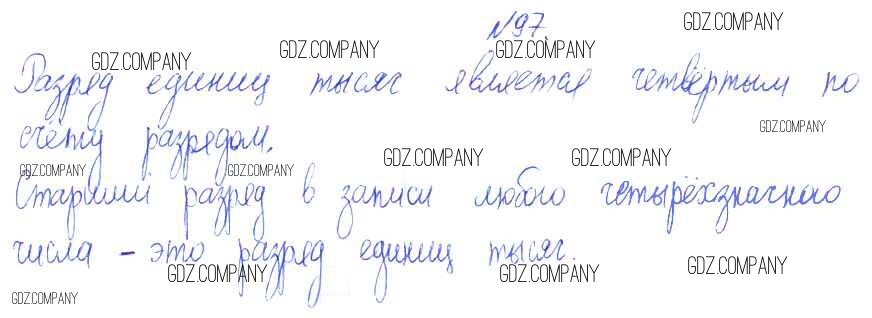 №97.
GDZ.COMPANY
GDZ.COMPANY GDZ.COMPANY GDZ.COMPANY
Разряд единиц тысяч является четвёртым по
GDZ.COMPANY
счёту разрядом.
GDZ.COMPANY GDZ.COMPANY
GDZ.COMPANY GDZ.COMPANY
Старший разряд в записи любого четырёхзначного
числа – это разряд единиц тысяч.
GDZ.COMPANY GDZ.COMPANY GDZ.COMPANY
GDZ.COMPANY